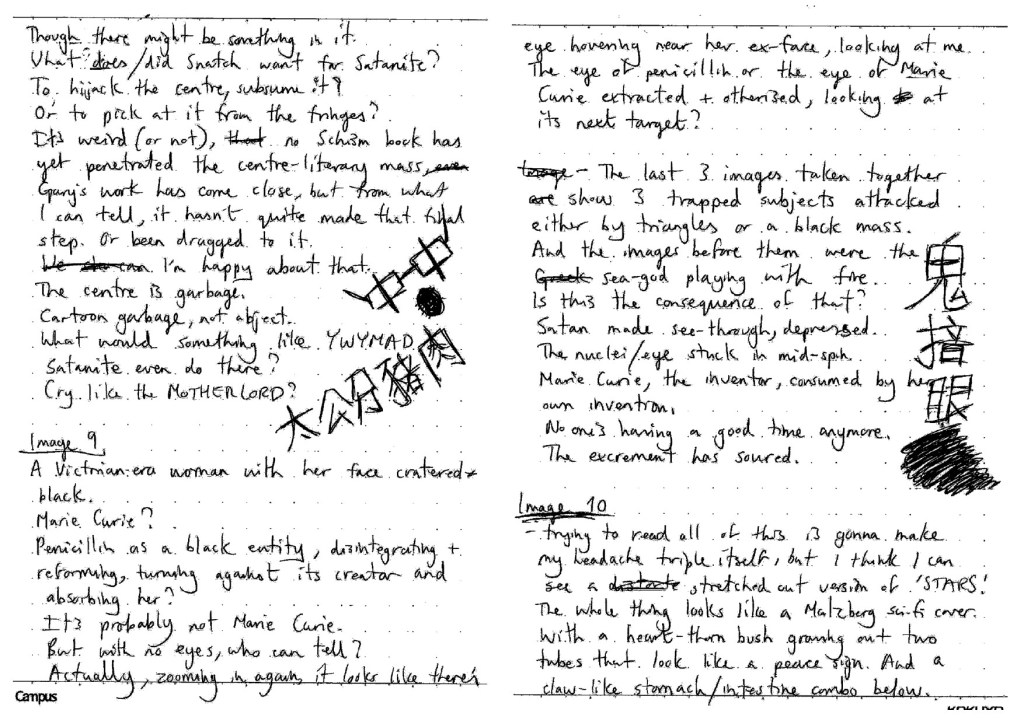 Though there might be something in it.
What does/did Snatch want for Satanite?
To hijack the centre, subsume it?
Or to pick at it from the fringes?
It's weird (or not), that no Schism book has
yet penetrated the centre-literary mass, even
Gary's work has come close, but from what
I can tell, it hasn't quite made that final
step. Or been dragged to it.
We I'm happy about that.
The centre is garbage.
Cartoon garbage, not abject.
What would something like YWYMAD
Satanite even do there?
Cry like the MOTHERLORD?
豬肉
Image 9
A Victrian-era woman with her face cratered +
black.
Marie Curie?
Penicillin as a black entity, disintegrating +
reforming, turning against its creator and
absorbing her?
It's probably not Marie Curie.
But with no eyes, who can tell?
Actually, zooming in again, it looks like there's
Campus
eye hovering near her ex-face, looking at me.
The eye of penicillin or the eye of Marie
Curie extracted + otherised, looking at
its next target?
Image - The last 3 images taken together
are show 3 trapped subjects attacked
either by triangles or a black mass.
And the images before them were the
Greek sea-god playing with fire.
Is this the consequence of that?
Satan made see-through, depressed.
The nuclei/eye stuck in mid-spin.
Marie Curie, the inventor, consumed by her
own invention.
No one's having a good time anymore.
The excrement has soured.
鬼揞眼
Image 10
- trying to read all of this is gonna make
my headache triple itself, but I think I can
see a stretched out version of 'STARS'.
The whole thing looks like a Malzberg sci-fi cover.
With a heart-thorn bush growing out two
tubes that look like a peace sign. And a
claw-like stomach/intestine combo below.
KOKUYO